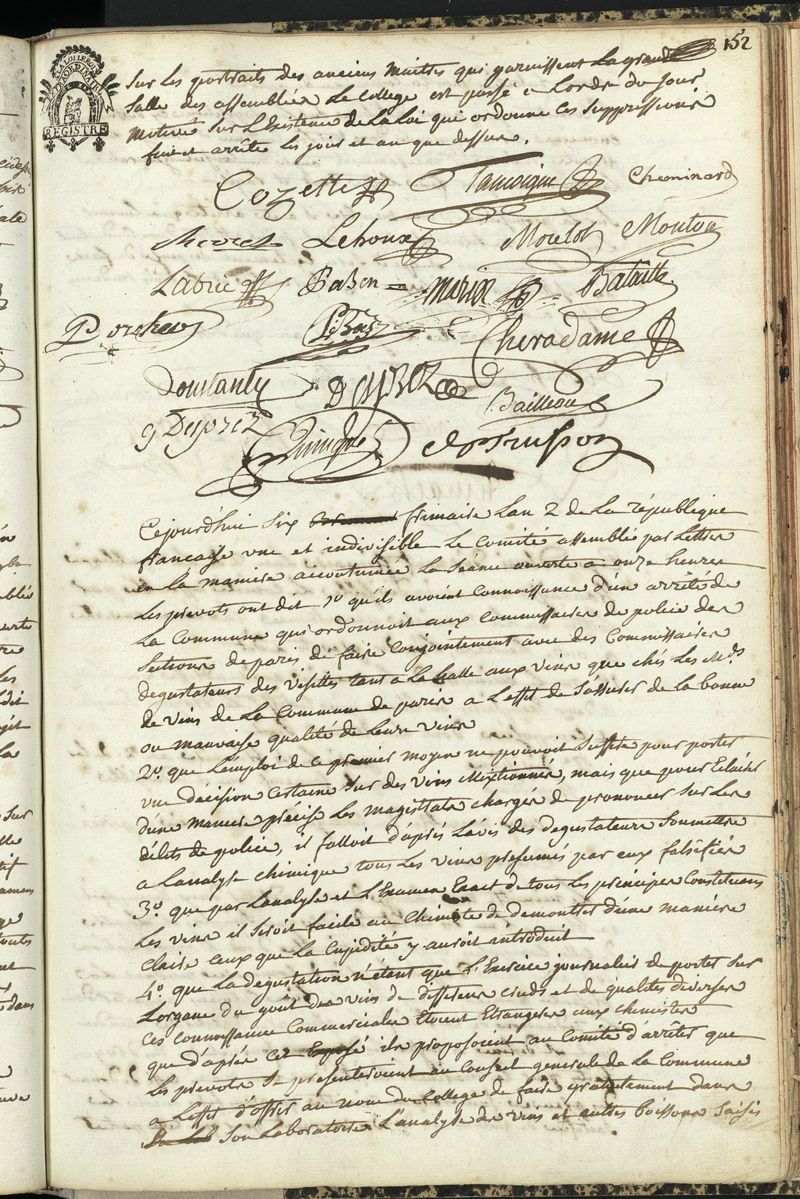 152
LA LOI LE ROI
REGISTRE
sur les portraits des anciens maitres qui garnissent la grande
salle des assemblées le college est passé a lordre du jour
motivé sur lexistence de la loi qui ordonne ces suppressions
fini et arrêté les jour et an que dessus.
Cozette Tancoigne Cheminard
Lehoux Morelot Mouton
Labric Baben Bataille
P Bas Cheradame
Bailleau
g Desprez
Quinquet de Trusson
Cejourd'hui six frimaire lan 2 de la république
francaise une et indivisible le Comité assemblé par lettres
en la maniere accoutumée la séance ouverte a onze heures
les prevots ont dit 1º qu'ils avoient connoissance d'un arrêté de
la Commune qui ordonnoit aux commissaires de police des
sections de paris de faire conjointement avec des Commissaires
degustateurs des visittes tant a la halle aux vins que chés les Mds
de vins de la Commune de paris a l'effet de s'assurer de la bonne
ou mauvaise qualité de leurs vins
2º. que l'emploi de ce premier moyen ne pouvoit suffire pour porter
une décision certaine sur des vins Mixtionnés, mais que pour Eclairer
d'une maniere précise les magistrats chargés de prononcer sur les
délits de police, il falloit d'après l'avis des degustateurs soumettre
a lanalyse chimique tous les vins présumés par eux falsifiés
3º. que par lanalyse et l'Examen Exact de tous les principes Constituans
les vins il seroit facile au Chimiste de demontrer d'une maniere
claire ceux que la Cupidité y auroit introduit
4º. que la degustation n'étant que l'Exercice journalier de porter sur
lorgane du goût des vins de differens cruds et de qualités diverses
ces connoissances Commerciales étoient Etrangeres aux chimistes
que d'après cet Exposé ils proposoient au Comité d'arrêter que
les prevots se presenteroient au Conseil general de la Commune
a l'effet d'offrir au nom du College de faire gratuitement dans
son Laboratoire l'analyse des vins et autres boissons saisis